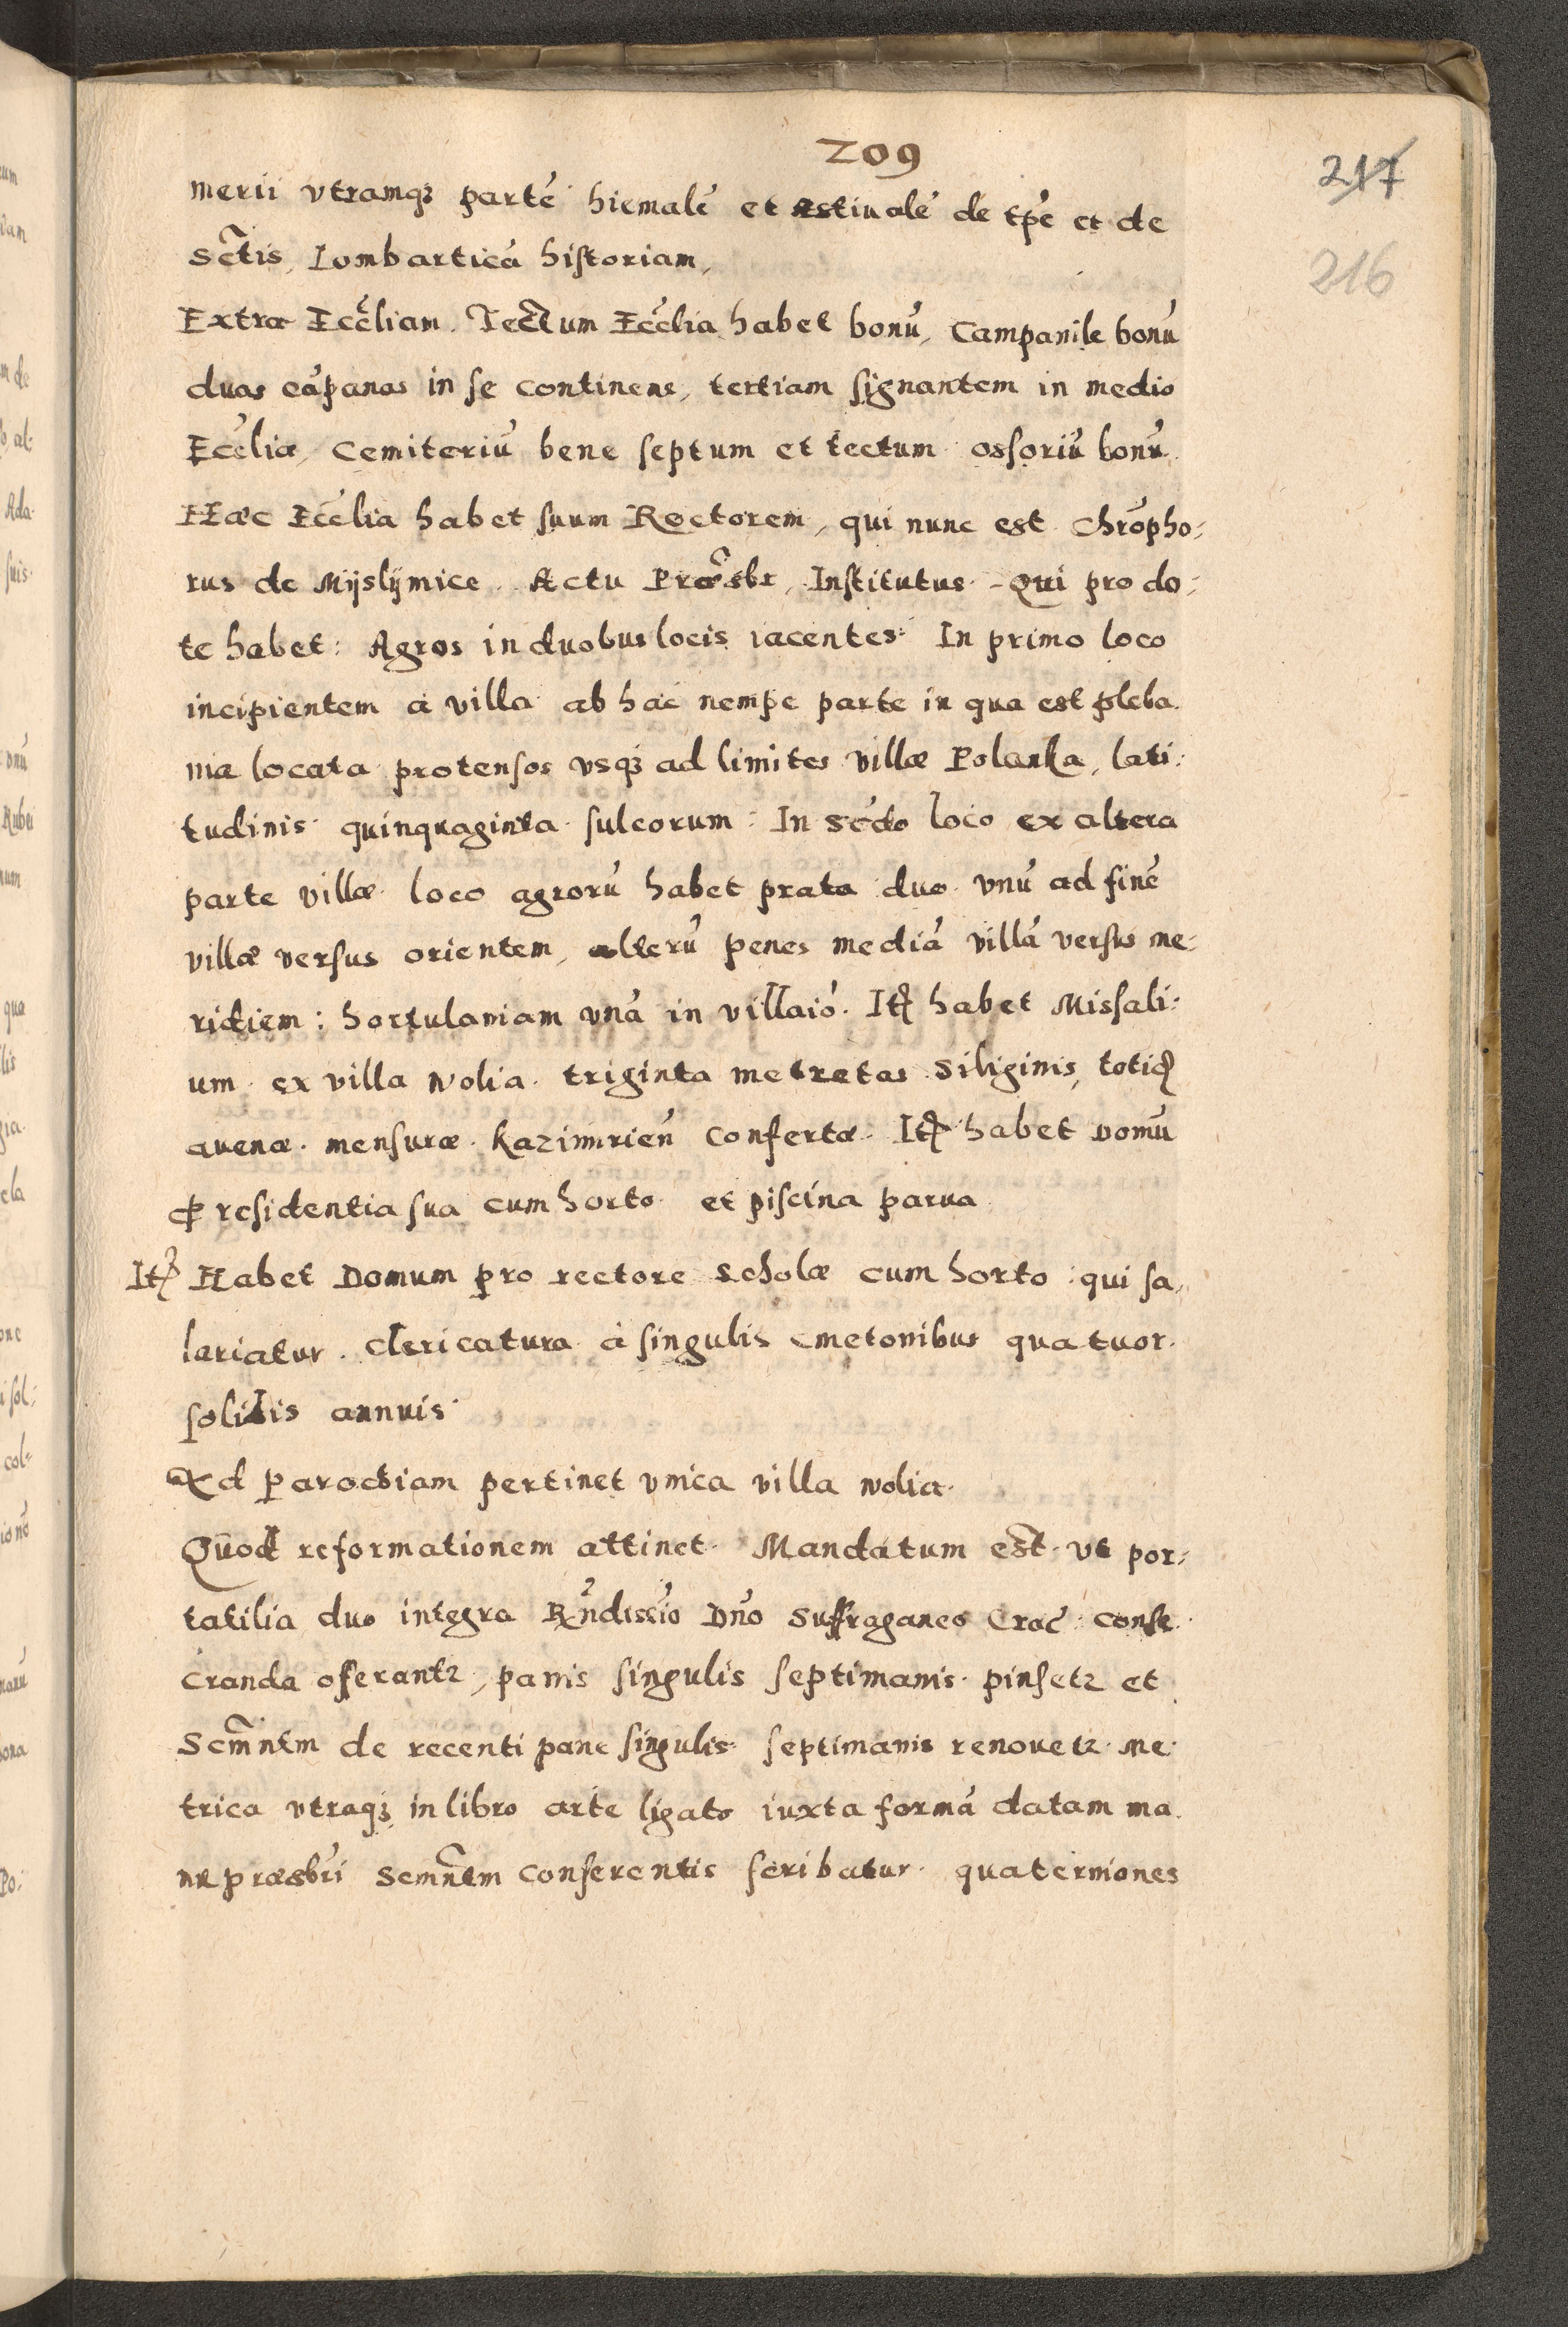 209
217
216
merii vtramqȝ parté hiemalé et æstiualé de tp̃e et de
Sc̃tis, Lombarticá historiam,
Extra Eccl̃iam. Tectum Eccl̃ia habet bonú, Campanile bonú
duas cápanas in se continens, tertiam signantem in medio
Eccl̃iæ, Cemiteriú bene septum et tectum ossoriú bonú.
Hæc Eccl̃ia habet suum Rectorem, qui nunc est Chr̃opho:
rus de Mijslijmice. Actu Præsbr, Institutus. Qui pro do:
te habet: Agros in duobus locis iacentes: In primo loco
incipientem à villa ab hac nempe parte in qua est pleba.
nia locata protensos vsqȝ ad limites villæ Polanka, lati:
tudinis quinquaginta sulcorum: In sc̃do loco ex altera
parte villæ loco agrorú habet prata duo vnú ad finé
villæ versus orientem, alterú penes mediá villá versus me:
ridiem: hortulaniam vná in villa io. Itꝫ habet Missali:
um ex villa Wolia triginta metretas Siliginis, totiꝫ
auenæ mensuræ Kazimrien̄ Confertæ. Itꝫ habet Domú
ꝓ residentia sua cum horto et piscina parua
Itꝫ Habet Domum pro rectore scholæ cum horto: qui sa,
lariatur. Clericatura à singulis cmetonibus quatuor
solidis annuis.
Ad parochiam pertinet vnica villa Wolia.
Quod reformationem attinet. Mandatum est. vt por:
tatilia duo integra Rñdissĩo Dño Suffraganeo Crac̃ conse
cranda offerantꝛ, panis singulis septimanis pinsetꝛ et
Scm̃ntm de recenti pane singulis septimanis renouetꝛ. Me
trica vtraqȝ in libro arte ligato iuxta formá datam ma
nu præsbr̃i Scm̃ntm conferentis scribatur. quaterniones